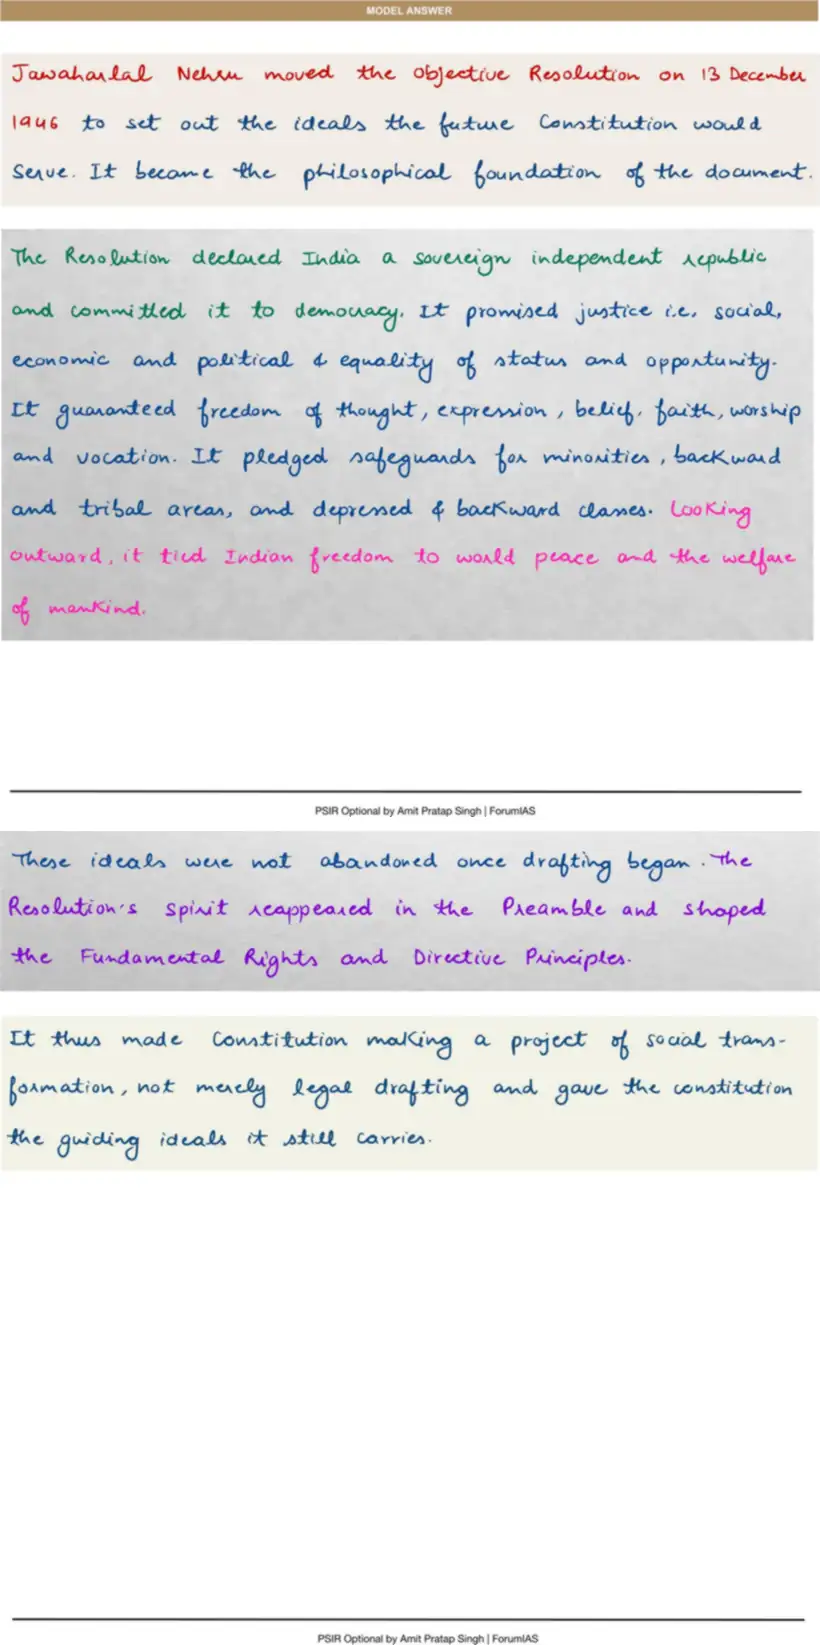 MODEL ANSWER
Jawaharlal Nehru moved the Objective Resolution on 13 December
1946 to set out the ideals the future Constitution would
Serve. It became the philosophical foundation of the document.
The Resolution declared India a sovereign independent republic
and committed it to democracy. It promised justice i.e. social,
economic and political & equality of status and opportunity.
It guaranteed freedom of thought, expression, belief, faith, worship
and vocation. It pledged safeguards for minorities, backward
and tribal areas, and depressed & backward classes. Looking
outward, it tied Indian freedom to world peace and the welfare
of mankind.
PSIR Optional by Amit Pratap Singh | ForumIAS
These ideals were not abandoned once drafting began. The
Resolution's spirit reappeared in the Preamble and shaped
the Fundamental Rights and Directive Principles.
It thus made Constitution making a project of social trans-
formation, not merely legal drafting and gave the constitution
the guiding ideals it still carries.
PSIR Optional by Amit Pratap Singh | ForumIAS